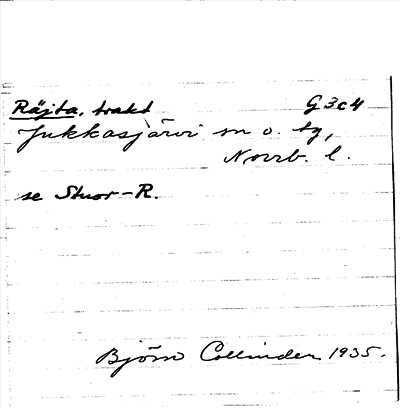 Räjta, trakt G3c4
Jukkasjärvi sn o. tg,
Norrb. l.
se Stuor-R.
Björn Collinder 1935.